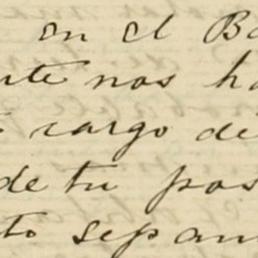 en el Ba
nte nos ha
cargo de
de tu pos
to sepan